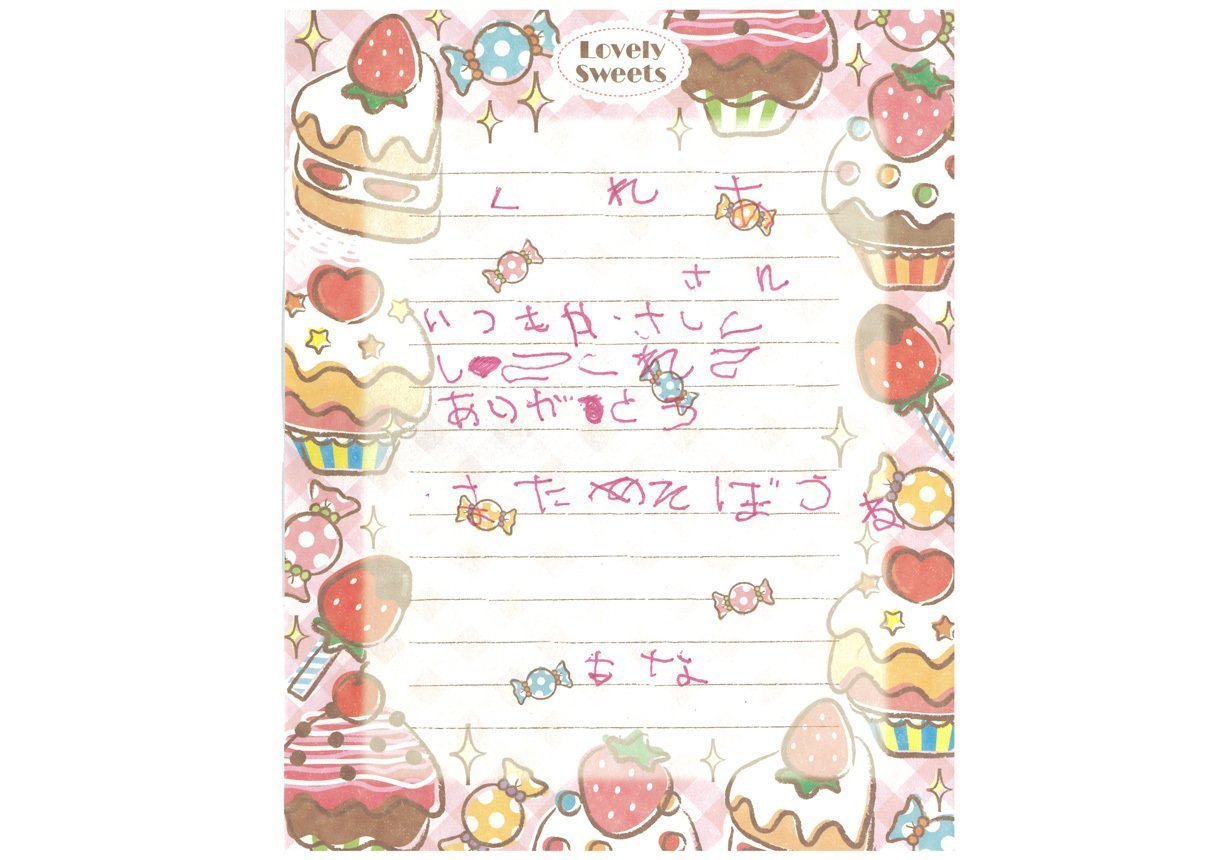 Lovely
Sweets
く れ な
さ ん
いつもやさしく
し くれて
ありがとう
またあそぼうね
もな